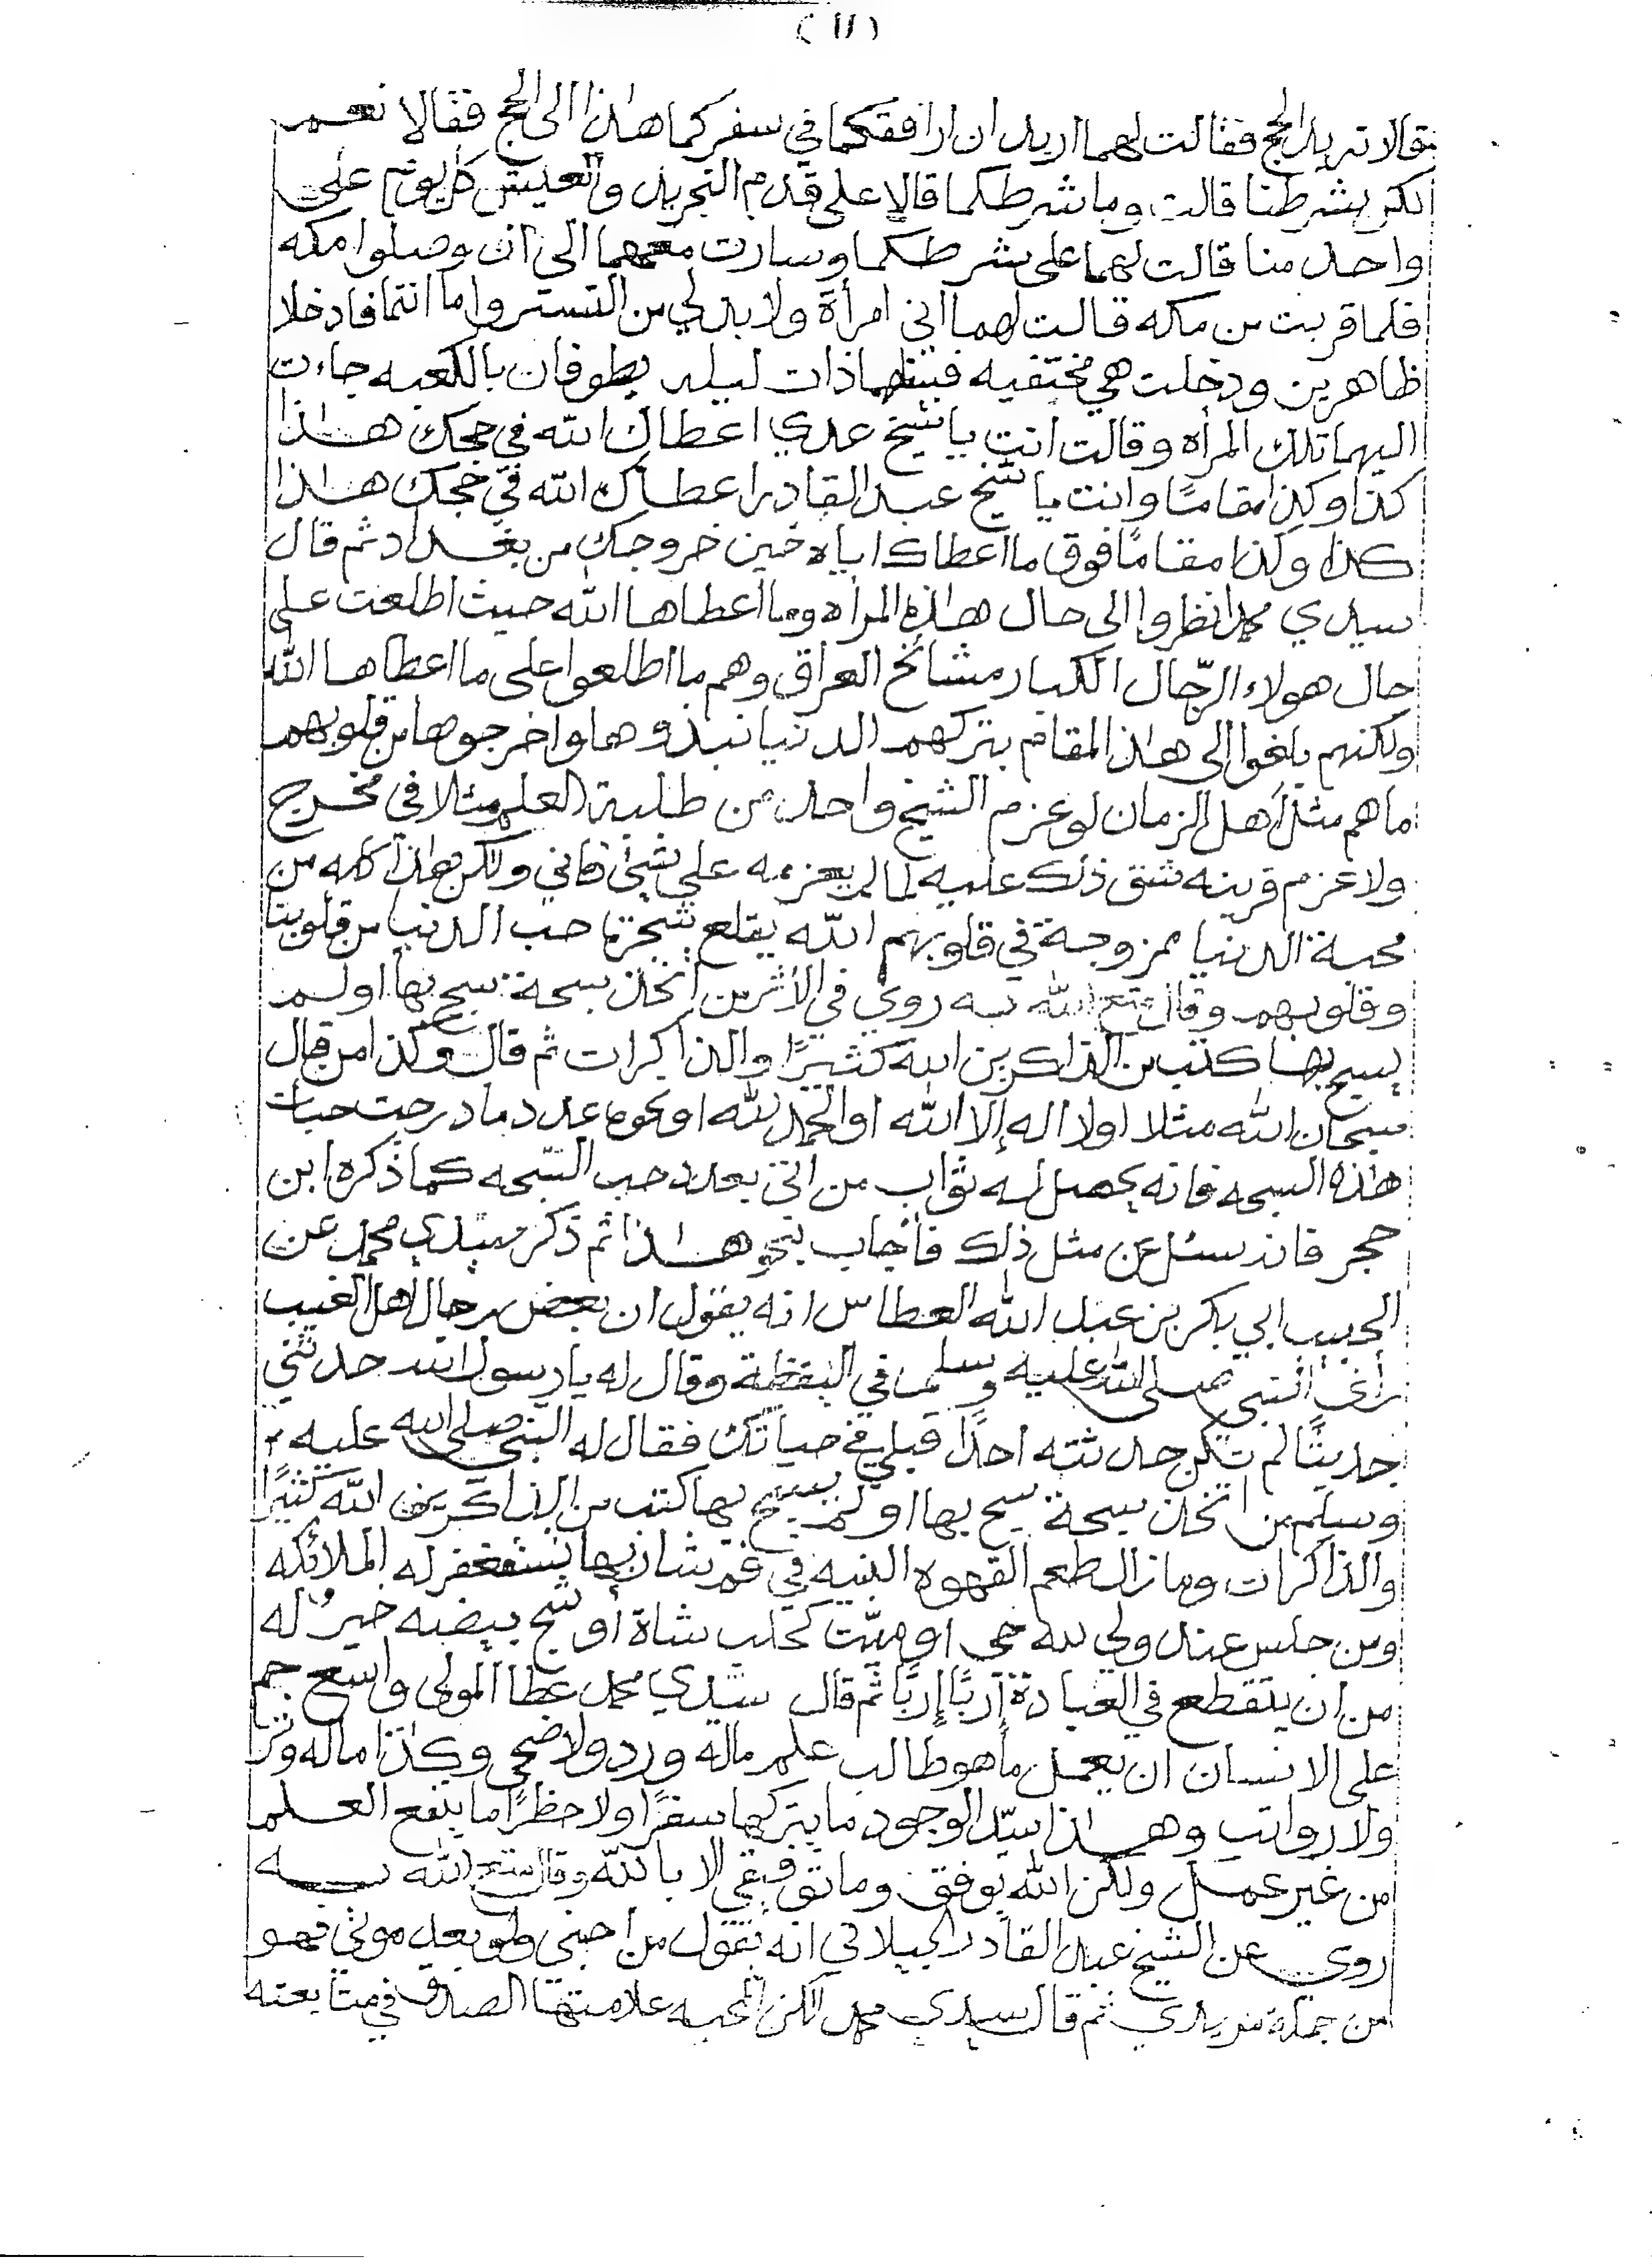 ( ١١ )
فقالا نريد الحج فقالت لهما اريد ان ارافقكما في سفركما هاذا الى الحج فقالا نعم
لكن بشرطنا قالت وما شرطكما قالا على قدم التجريد والعيش كل يوم على
واحد منا قالت لهما على شرطكما وسارت معهما الى ان وصلوا مكه
فلما قربت من مكه قالت لهما اني امرأة ولا بد لي من التستر واما انتما فادخلا
ظاهرين ودخلت هي مختفيه فبينما هما ذات ليله يطوفان بالكعبه جاءت
اليهما تلك المرأه وقالت انت يا شيخ عدي اعطاك الله في حجك هاذا
كذا وكذا مقامًا وانت يا شيخ عبد القادر اعطاك الله في حجك هاذا
كذا وكذا مقامًا فوق ما اعطاك اياه حين خروجك من بغداد ثم قال
سيدي محمد انظروا الى حال هاذه المرأه وما اعطاها الله حيث اطلعت على
حال هولاء الرّجال الكبار مشائخ العراق وهم ما اطلعوا على ما اعطاها الله
ولكنهم بلغوا الى هاذا المقام بتركهم الدنيا نبذوها واخرجوها من قلوبهم
ما هم مثل اهل الزمان لو عزم الشيخ واحد من طلبة العلم مثلا في مخرج
ولا عزم قرينه شق ذلك عليه لما لم يعزمه على شيئ فاني ولكن هاذا كله من
محبة الدنيا ممزوجة في قلوبهم الله يقلع شجرة حب الدنيا من قلوبنا
وقلوبهم وقال متع الله به روي في الأثر من اتخذ سبحة سبح بها او لم
يسبح بها كتب من الذاكرين الله كثيرًا والذاكرات ثم قال وكذا من قال
سبحان الله مثلا او لا اله إلا الله او الحمد لله او نحوه عدد ما درجت حبات
هاذه السبحه فانه يحصل له ثواب من اتى بعدد حب السّبحه كما ذكره ابن
حجر فانه سئل عن مثل ذلك فأجاب بنحو هاذا ثم ذكر سيدي محمد عن
الحبيب ابي بكر بن عبد الله العطاس انه يقول ان بعض رجال اهل الغيب
رأى النبي صلى الله عليه وسلم في اليقظة وقال له يا رسول الله حدثني
حديثًا لم تكن حدثته احدًا قبلي في حياتك فقال له النبي صلى الله عليه
وسلم من اتخذ سبحة سبح بها او لم يسبح بها كتب من الذاكرين الله كثيرًا
والذاكرات وما زال طعم القهوه البنيه في فم شاربها تستغفر له الملائكه
ومن جلس عند ولي لله حي او ميّت كحلب شاة أو شيّ بيضه خيرٌ له
من ان يتقطع في العبادة إربًا إربًا ثم قال سيدي محمد عطا المولى واسع جم
على الانسان ان يعمل ما هو طالب علم ماله ورد ولا ضحى وكذا ماله وتر
ولا رواتب وهاذا سيّد الوجود ما يتركها سفرًا ولا حظرًا ما ينفع العلم
من غير عمل ولكن الله يوفق وما توفيقي الا بالله وقال متع الله به
روي عن الشيخ عبد القادر الجيلاني انه يقول من احبني ولو بعد موتي فهو
من جملة مريدي ثم قال سيدي محمد لكن المحبه علامتها الصدق في متابعته